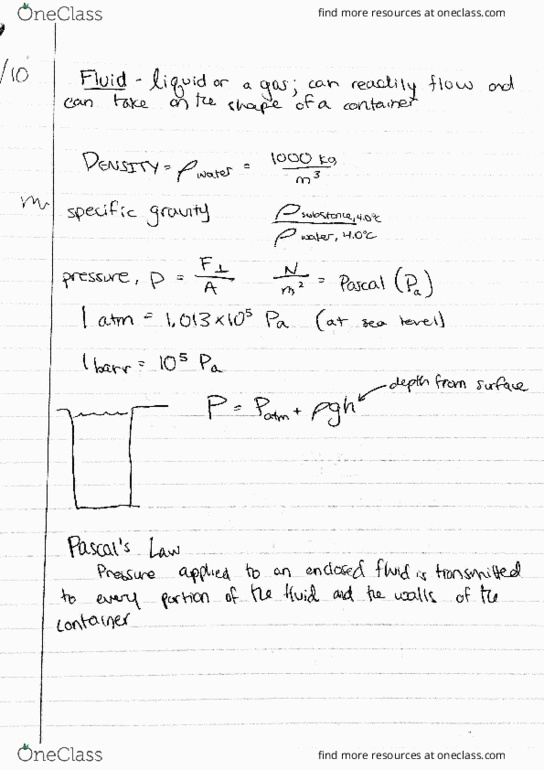 OneClass
find more resources at oneclass.com
/10
Fluid - liquid or a gas; can readily flow and
can take on the shape of a container
DENSITY = ρ water = 1000 kg / m³
m
specific gravity ρ substance, 4.0°C / ρ water, 4.0°C
pressure, P = F⊥ / A N / m² = Pascal (Pa)
1 atm = 1.013 × 10⁵ Pa (at sea level)
1 barr = 10⁵ Pa
depth from surface
P = Patm + ρgh
Pascal's Law
Pressure applied to an enclosed fluid is transmitted
to every portion of the fluid and the walls of the
container
OneClass
find more resources at oneclass.com